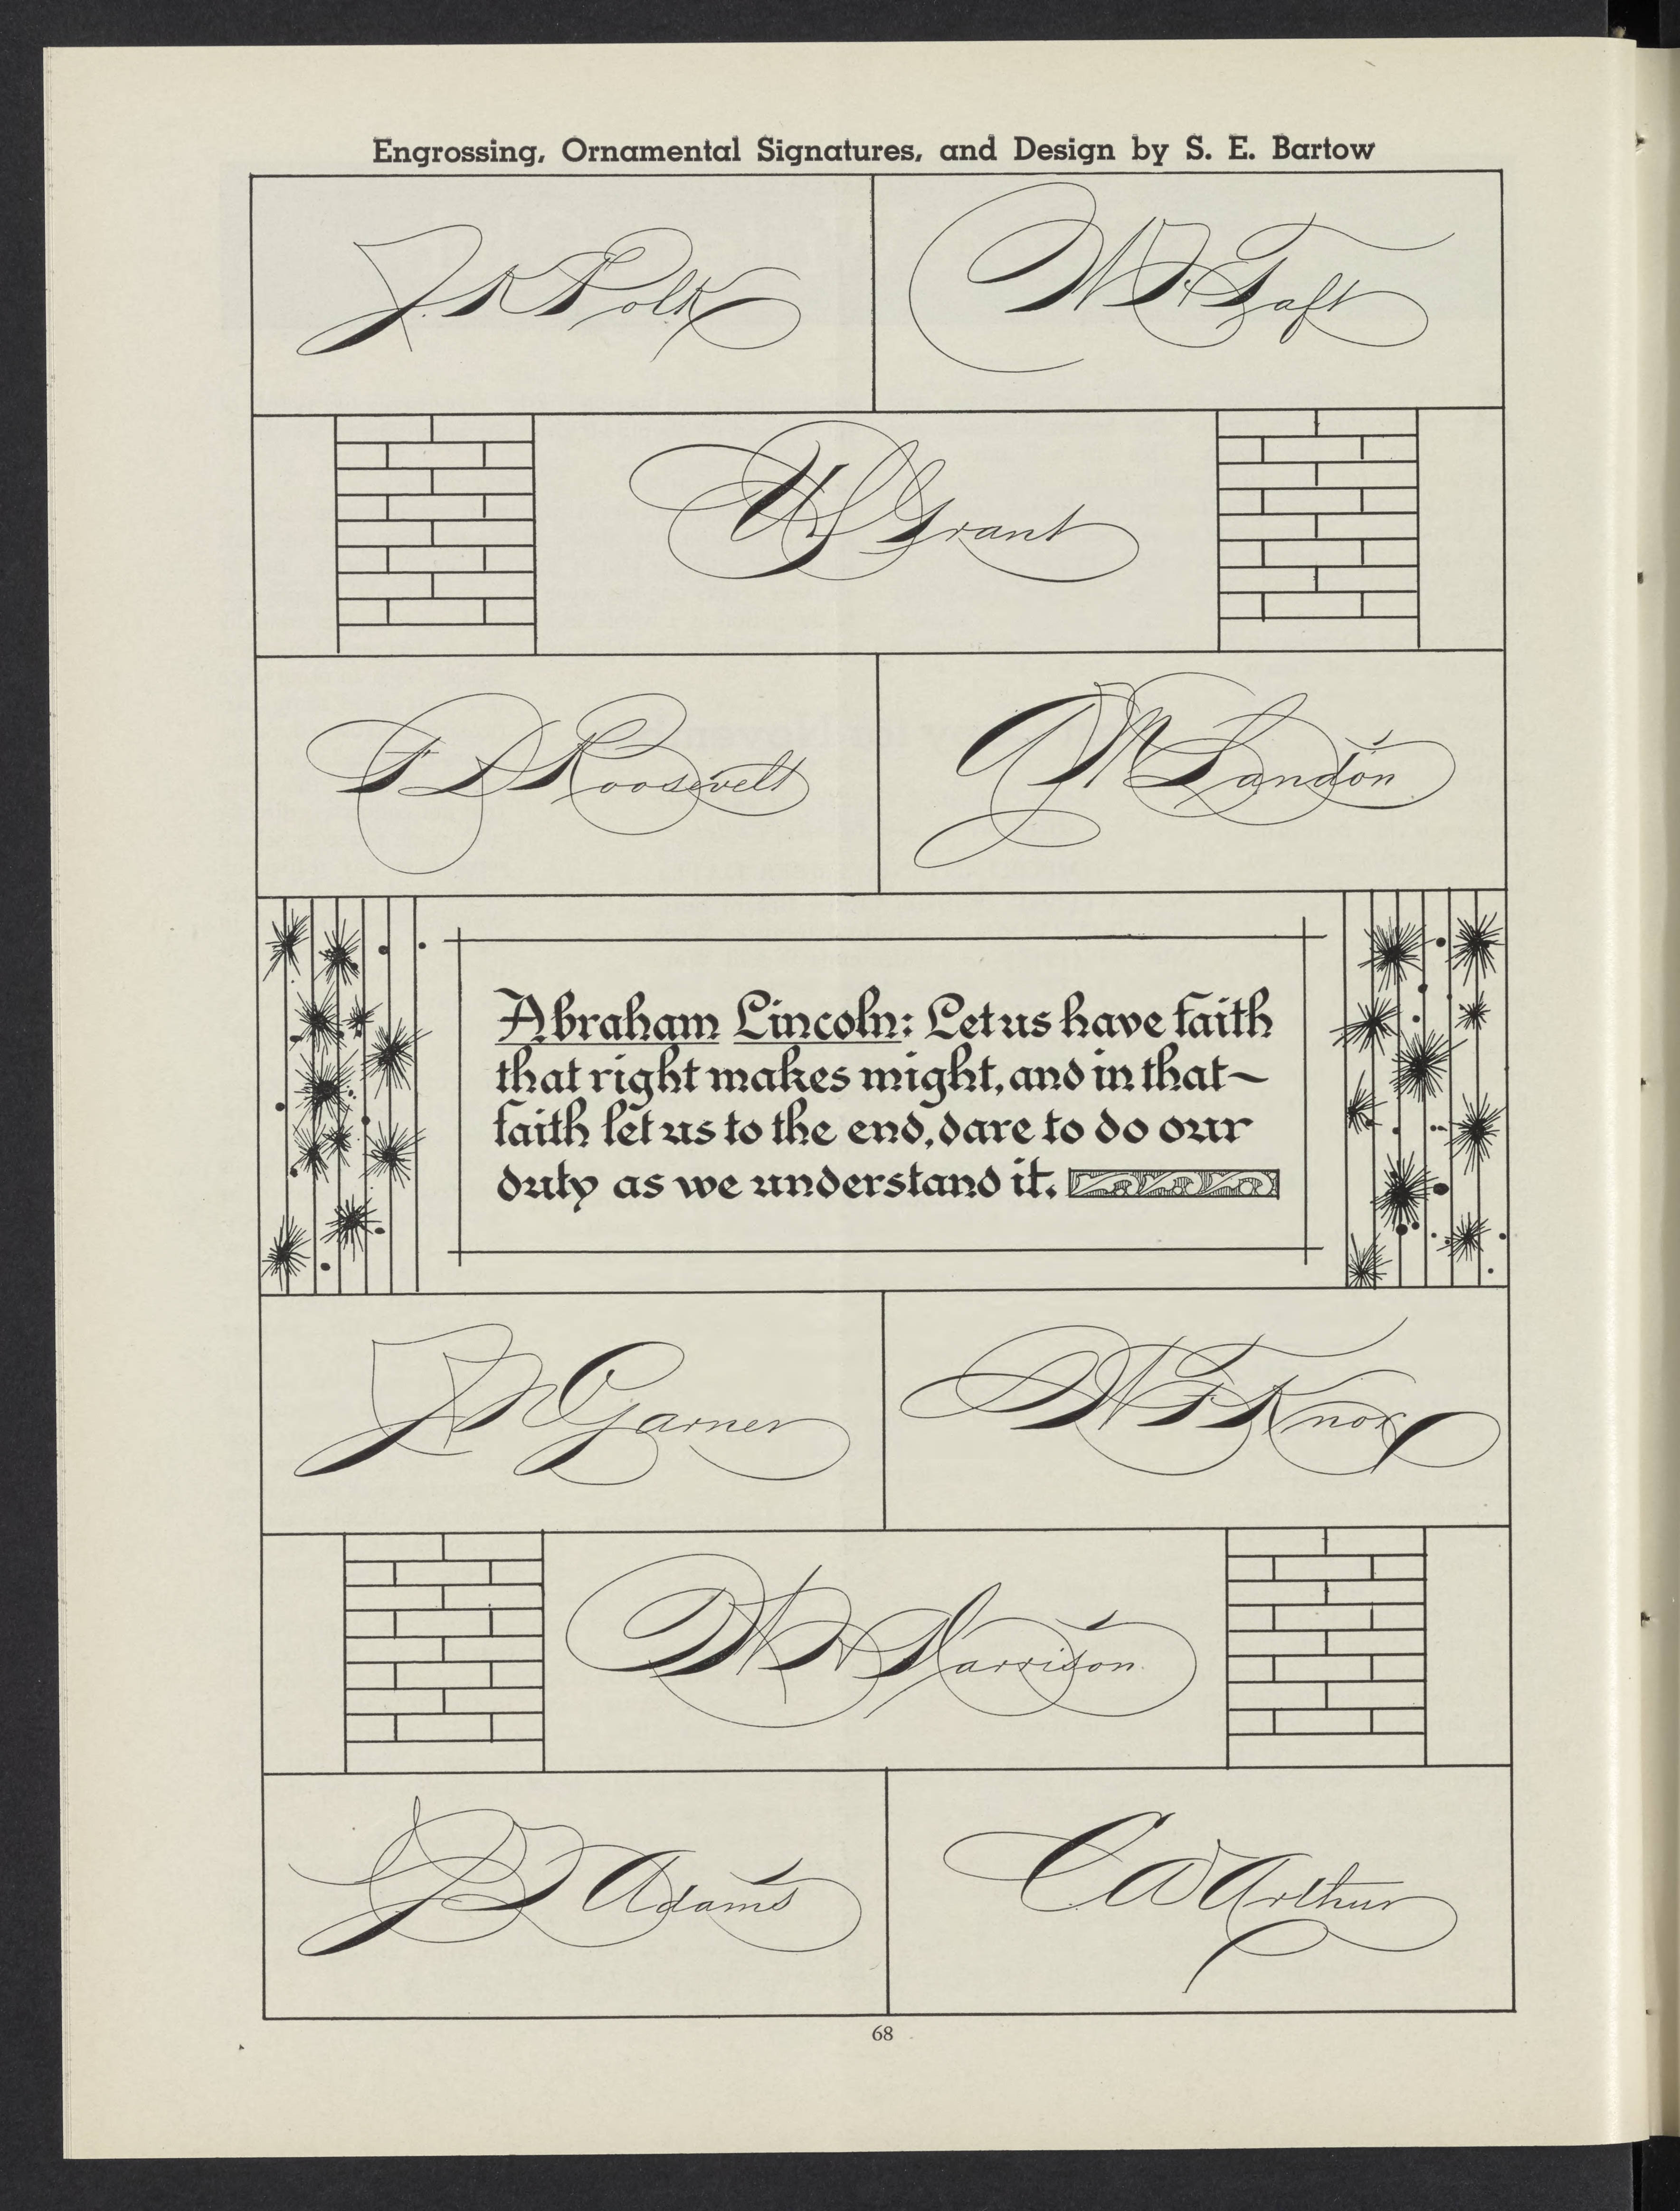 Engrossing, Ornamental Signatures, and Design by S. E. Bartow
J. K Polk
W. H. Taft
U S Grant
F D Roosevelt
A M Landon
Abraham Lincoln: Let us have faith
that right makes might, and in that~
faith let us to the end, dare to do our
duty as we understand it.
J N Garner
W F Knox
W H Harrison
J Q Adams
C A Arthur
68